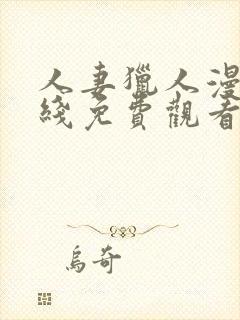 人妻獵人漫
綫免費觀看
烏奇